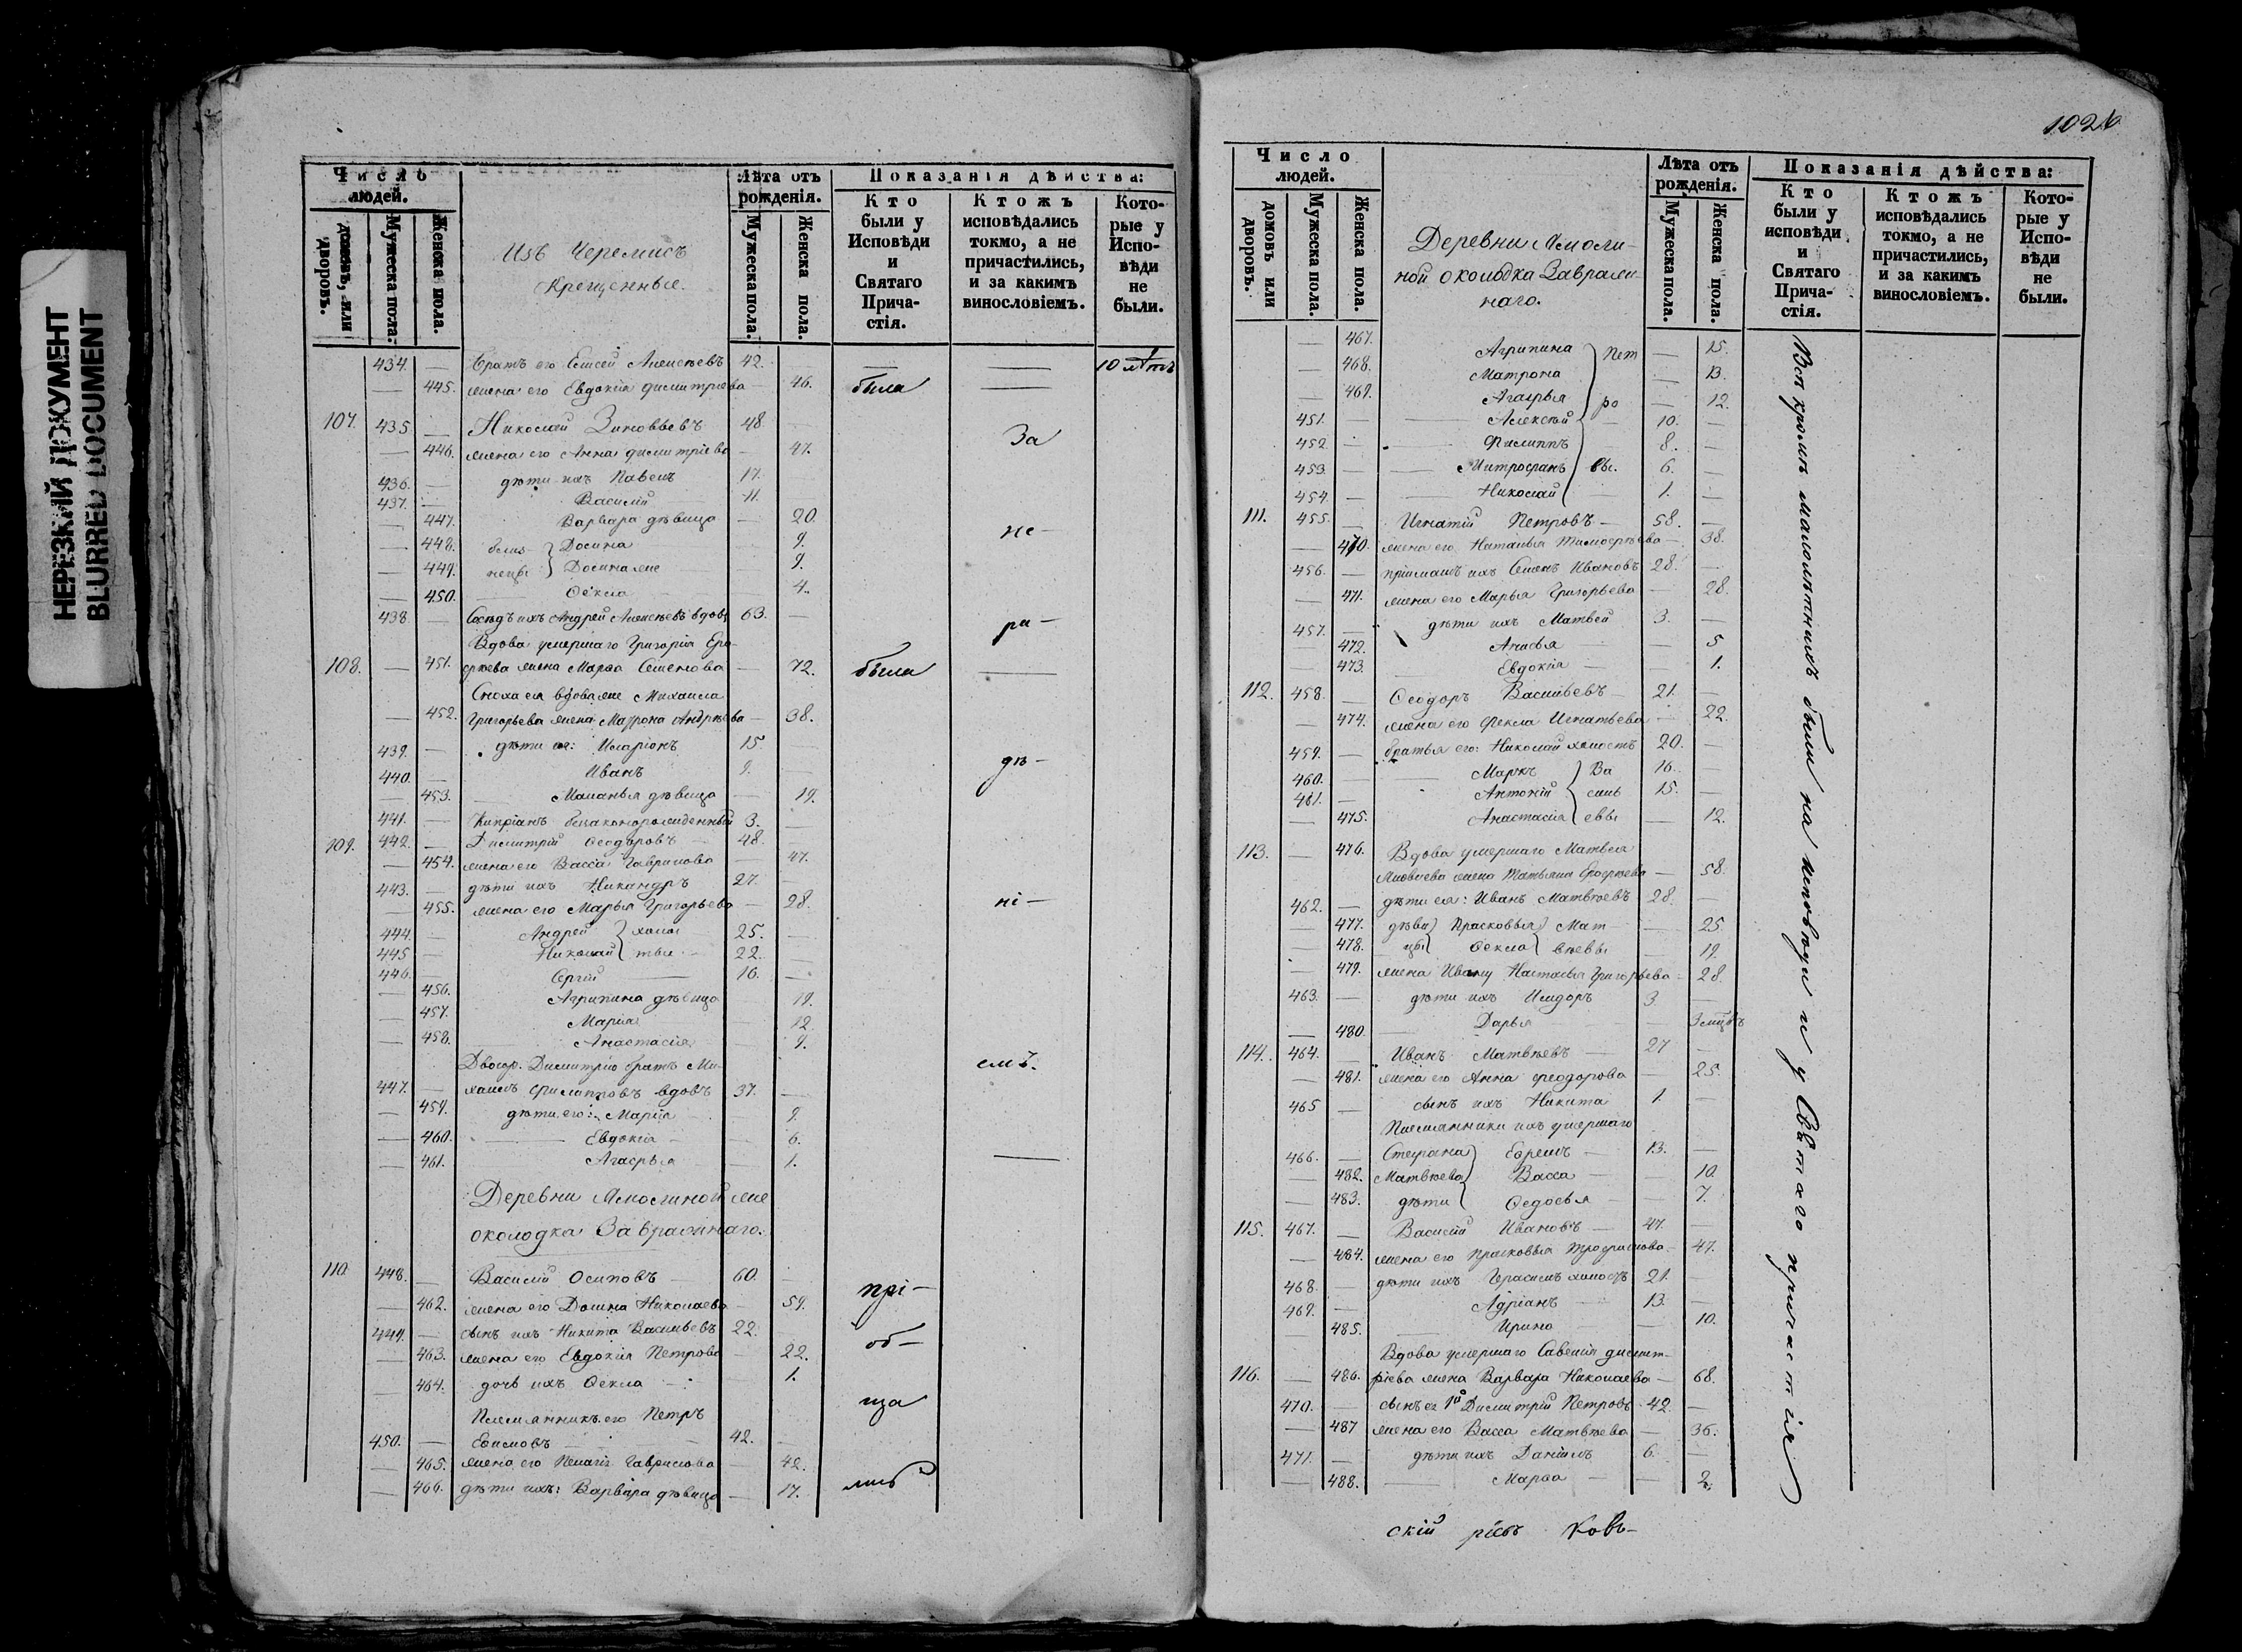 НЕРЕЗКИЙ ДОКУМЕНТ
BLURRED DOCUMENT
Число людей.
домовъ, или дворовъ.
Мужеска пола.
Женска пола.
Изъ Черемисъ
Крещенные.
Лѣта отъ рожденія.
Мужеска пола.
Женска пола.
Показанія дѣйства:
Кто были у Исповѣди и Святаго Причастія.
Ктожъ исповѣдались токмо, а не причастились, и за какимъ винословіемъ.
Которые у Исповѣди не были.
434. — Братъ его Елисей Алексѣевъ 42. — — 10 лѣтъ
— 445. жена его Евдокія Димитріева — 46. была —
107. 435. — Николай Зиновьевъ 48. —
— 446. жена его Анна Димитріева — 47.
За
436. — дѣти ихъ Павелъ 17.
437. — Василій 11.
— 447. Варвара дѣвица — 20.
не-
— 448. близ- Досина 9.
— 449. нецы Досина же 9.
— 450. Ѳекла 4.
438. — Сосѣдъ ихъ Андрей Алексѣевъ вдовъ 63. —
ра-
Вдова умершаго Григорія Еро-
108. — 451. фѣева жена Марѳа Семенова — 72. была —
Сноха ея вдова же Михаила
— 452. Григорьева жена Матрона Андрѣева — 38.
439. — дѣти ея: Иларіонъ 15. —
дѣ-
440. — Иванъ 9. —
— 453. Маланья дѣвица — 19.
441. — Кипріанъ беззаконорожденный 3. —
109. 442. — Димитрій Ѳеодоровъ 48. —
— 454. жена его Васса Гаврилова — 47.
443. — дѣти ихъ Никандръ 27. —
— 455. жена его Марья Григорьева — 28.
ні-
444. — Андрей холос 25. —
445. — Николай тые 22. —
446. — Сергій 16. —
— 456. Агрипина дѣвица 19.
— 457. Марія — 12.
— 458. Анастасія — 9.
Двоюр. Димитрію братъ Ми-
емъ.
447. — хаилъ Филипповъ вдовъ 37. —
— 459. дѣти его: Марія 9.
— 460. — Евдокія — 6.
— 461. Агафья — 1. —
Деревни Ямолиной же
околодка Завражнаго.
110. 448. — Василій Осиповъ 60. —
при-
— 462. жена его Домна Николаева — 59.
449. — сынъ ихъ Никита Васильевъ 22.
об-
— 463. жена его Евдокія Петрова — 22.
— 464. дочь ихъ Ѳекла — 1.
ща
Племянникъ его Петръ
450. — Ефимовъ 42. —
— 465. жена его Пелагія Гаврилова — 42.
— 466. дѣти ихъ: Варвара дѣвица — 17.
лись
1026
Число людей.
домовъ или дворовъ.
Мужеска пола.
Женска пола.
Деревни Ямоли-
ной околодка Завраж-
наго.
Лѣта отъ рожденія.
Мужеска пола.
Женска пола.
Показанія дѣйства:
Кто были у исповѣди и Святаго Причастія.
Ктожъ исповѣдались токмо, а не причастились, и за какимъ винословіемъ.
Которые у Исповѣди не были.
— 467. Агрипина Пет — 15.
— 468. Матрона — 13.
— 469. Агафья ро — 12.
451. — Алексѣй 10. —
452. — Филиппъ 8. —
453. — Митрофанъ вы. 6. —
454. — Николай 1. —
111. 455. — Игнатій Петровъ — 58. —
— 470. жена его Наталья Тимофѣева — 38.
456. — пріимашъ ихъ Семенъ Ивановъ 28. —
— 471. жена его Марья Григорьева — 28.
457. — дѣти ихъ Матвей 3. —
— 472. Анисья — 5
— 473. Евдокія — 1.
112. 458. — Ѳеодоръ Васильевъ 21. —
— 474. жена его Фекла Игнатьева — 22.
459. — братья его: Николай холостъ 20. —
460. — Маркъ Ва 16. —
461. — Антоній силь 15. —
— 475. Анастасія евы — 12.
113. — 476. Вдова умершаго Матвея
жена Татьяна Ерофѣева — 58.
462. — дѣти ея: Иванъ Матвѣевъ 28. —
— 477. дѣви Прасковья Мат — 25.
— 478. цы Ѳекла вѣевы — 19.
— 479. жена Ивану Настасья Григорьева — 28.
463. — дѣти ихъ Исидоръ 3. —
— 480. Дарья — 3 мцѣвъ
114. 464. — Иванъ Матвѣевъ — 27 —
— 481. жена его Анна Феодорова — 25.
465 — сынъ ихъ Никита 1. —
Племянники ихъ умершаго
466. — Стефана Ефремъ 13. —
— 482. Матвѣева Васса — 10.
— 483. дѣти Ѳедосья — 7.
115. 467. — Василій Ивановъ — 47. —
— 484. жена его Прасковья Трофимова — 47.
468. — дѣти ихъ Герасимъ холостъ 21. —
469. — Адріанъ 13. —
485. — Ирина — 10.
Вдова умершаго Савелія Димит-
116. — 486. ріева жена Варвара Николаева — 68.
470. — сынъ ея 1й Димитрій Петровъ 42. —
— 487 жена его Васса Матвѣева — 36.
471. — дѣти ихъ Даніилъ 6. —
— 488. — Марѳа — 2.
Всѣ кромѣ малолѣтнихъ были на исповѣди и у Святаго причастія
скій рість Ковъ-